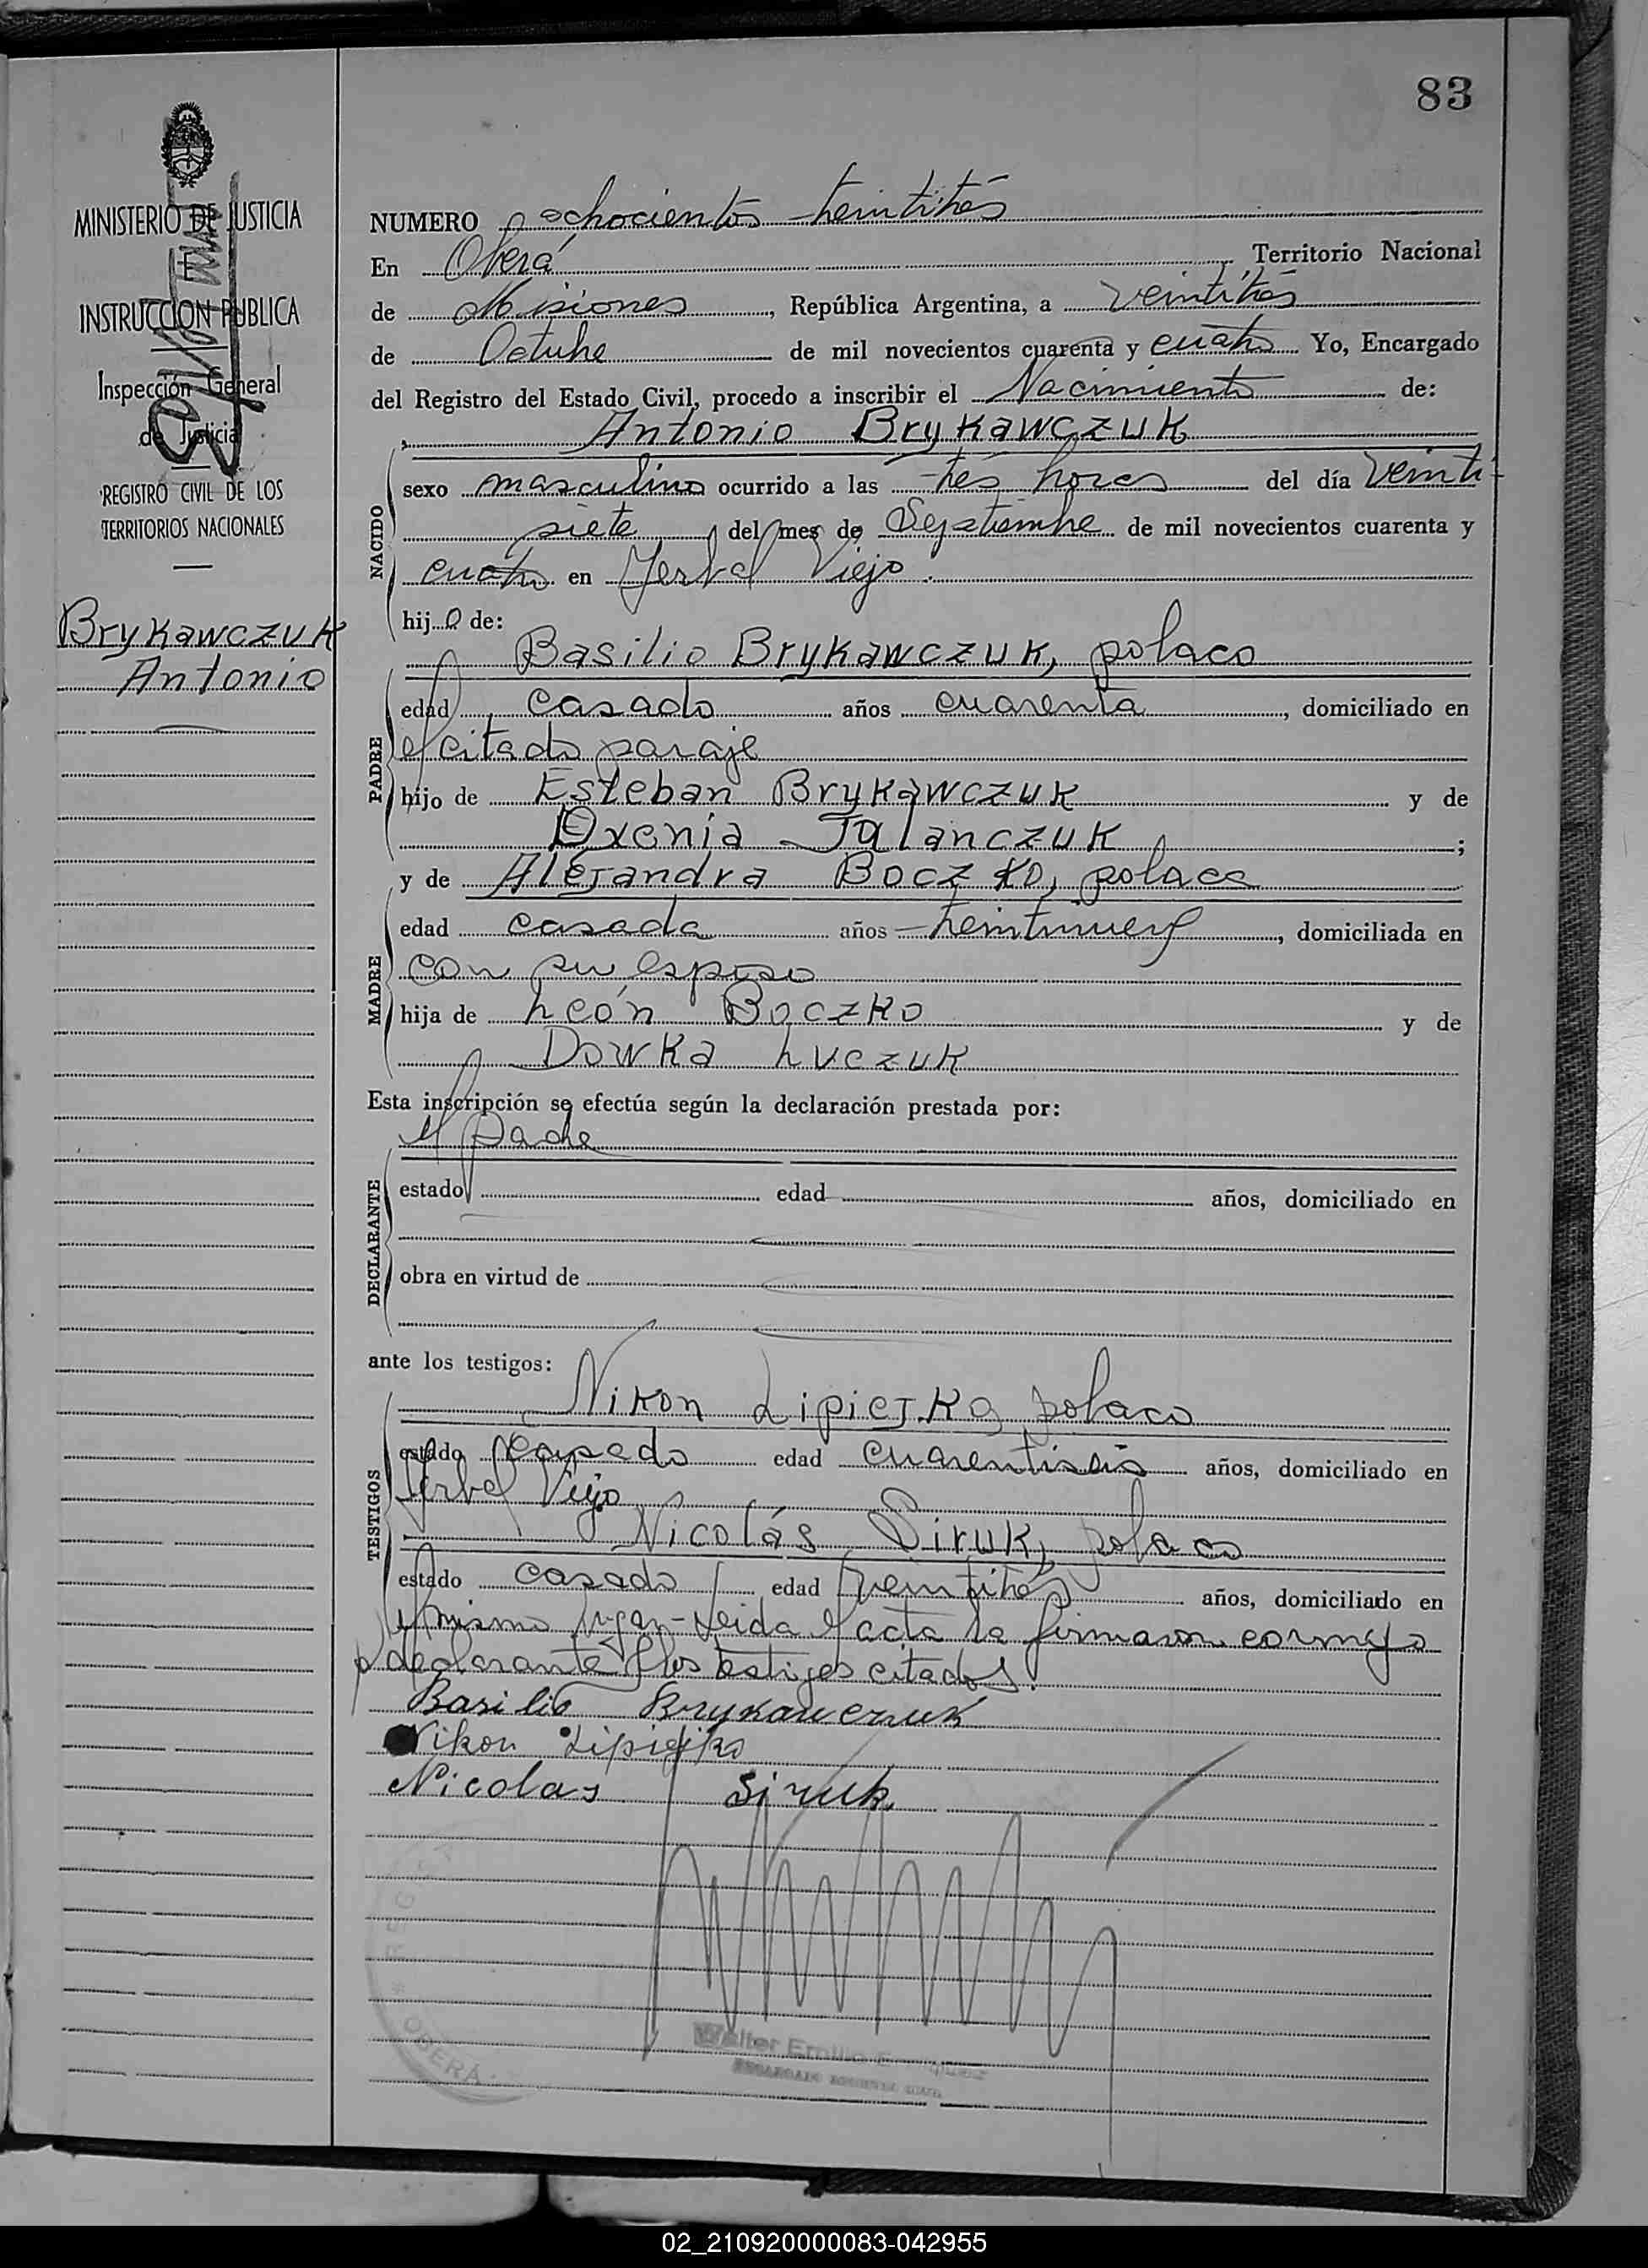 83
MINISTERIO DE JUSTICIA
E
INSTRUCCION PUBLICA
Inspección General
de Justicia
REGISTRO CIVIL DE LOS
TERRITORIOS NACIONALES
Brykawczuk
Antonio
NUMERO ochocientos treintitrés
En Oberá Territorio Nacional
de Misiones, República Argentina, a veintitrés
de Octubre de mil novecientos cuarenta y cuatro Yo, Encargado
del Registro del Estado Civil, procedo a inscribir el Nacimiento de:
Antonio Brykawczuk
NACIDO
sexo masculino ocurrido a las tres horas del día veinti-
siete del mes de Septiembre de mil novecientos cuarenta y
cuatro en Yerbal Viejo.
hijo de:
Basilio Brykawczuk, polaco
PADRE
edad casado años cuarenta, domiciliado en
el citado paraje
hijo de Esteban Brykawczuk y de
Oxenia Jalanczuk;
y de Alejandra Boczko, polaca
MADRE
edad casada años treintinueve, domiciliada en
con su esposo
hija de León Boczko y de
Dowka Luczuk
Esta inscripción se efectúa según la declaración prestada por:
el padre
DECLARANTE
estado edad años, domiciliado en
obra en virtud de
ante los testigos:
Nikon Lipiejko, polaco
TESTIGOS
estado casado edad cuarentiseis años, domiciliado en
Yerbal Viejo
Nicolás Siruk, polaco
estado casado edad veintitrés años, domiciliado en
el mismo lugar-Leida el acta la firmaron conmigo
el declarante y los testigos citados.
Basilio Brykawczuk
Nikon Lipiejko
Nicolas Siruk
OBERÁ
Walter Emilio Enriquez
ENCARGADO REGISTRO CIVIL
02_210920000083-042955